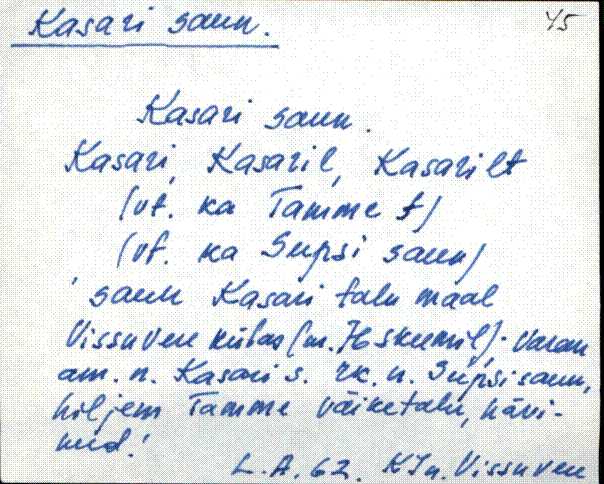 Kasari saun.
45
Kasari saun.
Kasari, Kasaril, Kasarilt
(vt. ka Tamme t)
(vt. ka Supsi saun)
saun Kasari talu maal
Vissuvere külas (m.
am. n. Kasari s. rk. n. Supsi saun,
hiljem Tamme väiketalu, hävi-
nud.
L.A. 62. KJn. Vissuvere